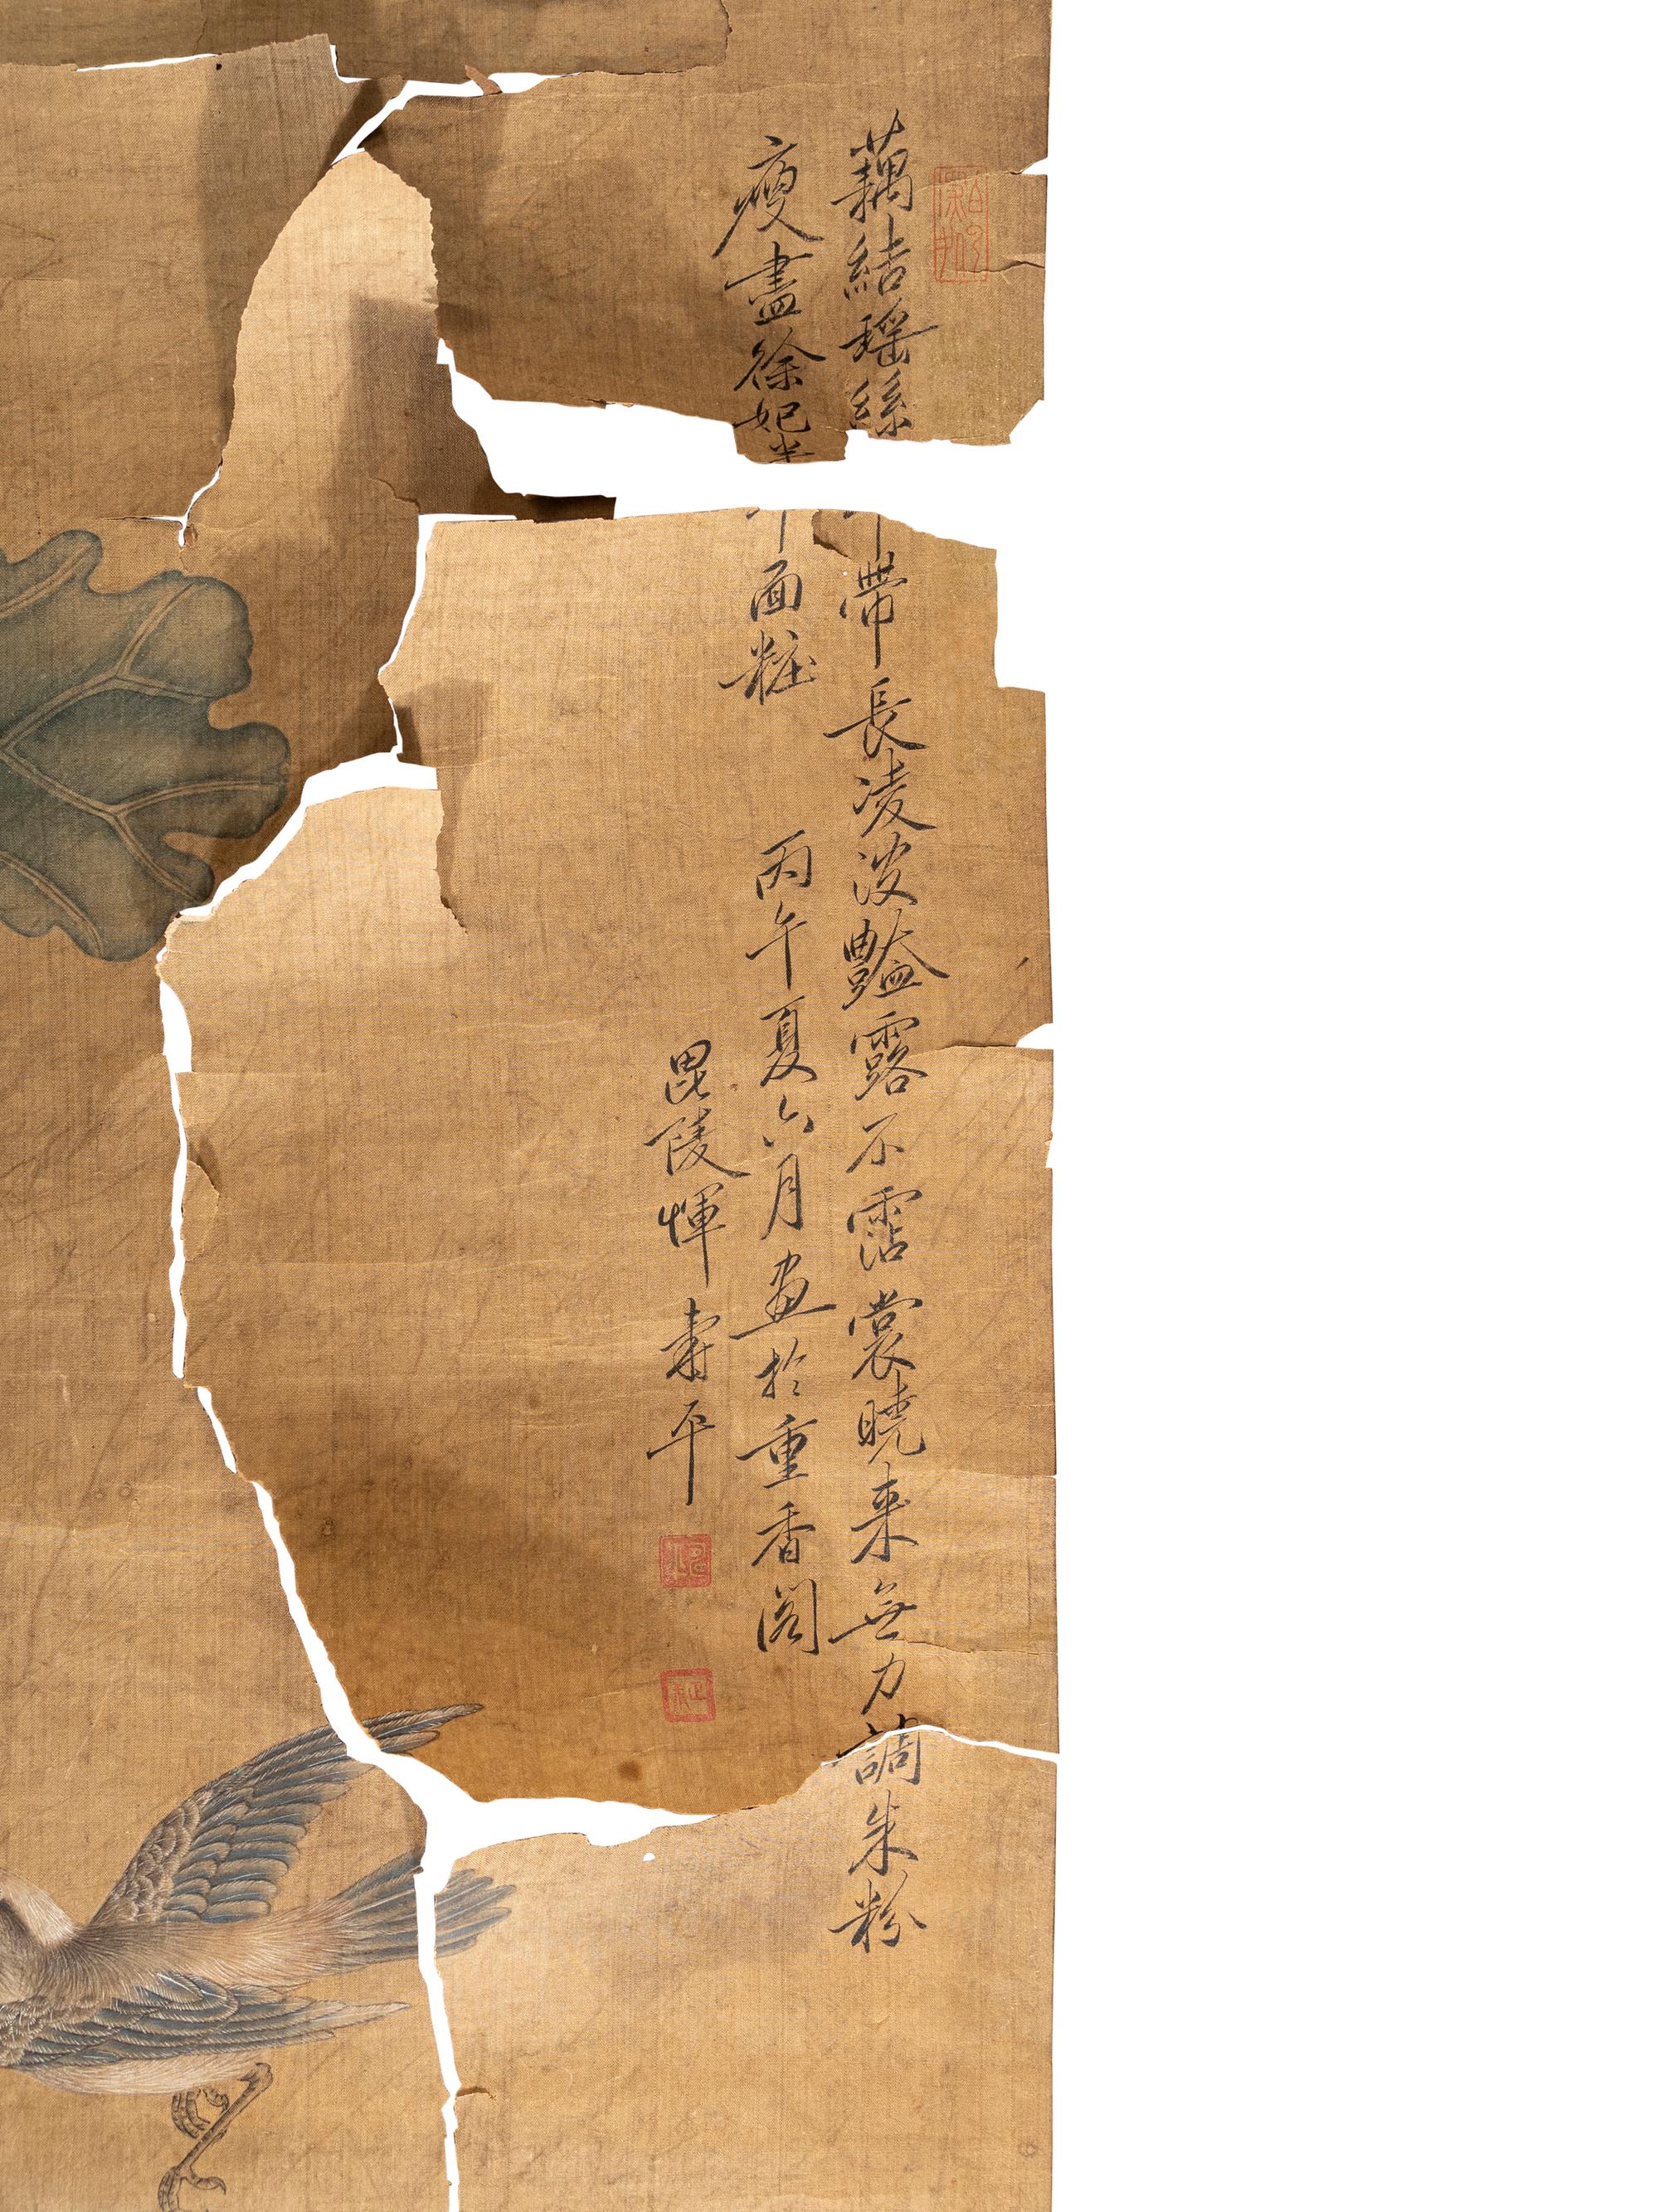 藕結瑶絲帶長凌波豔露不霑裳曉来無力調朱粉
瘦盡徐妃半面粧 丙午夏六月畫於重香閣
毘陵惲壽平